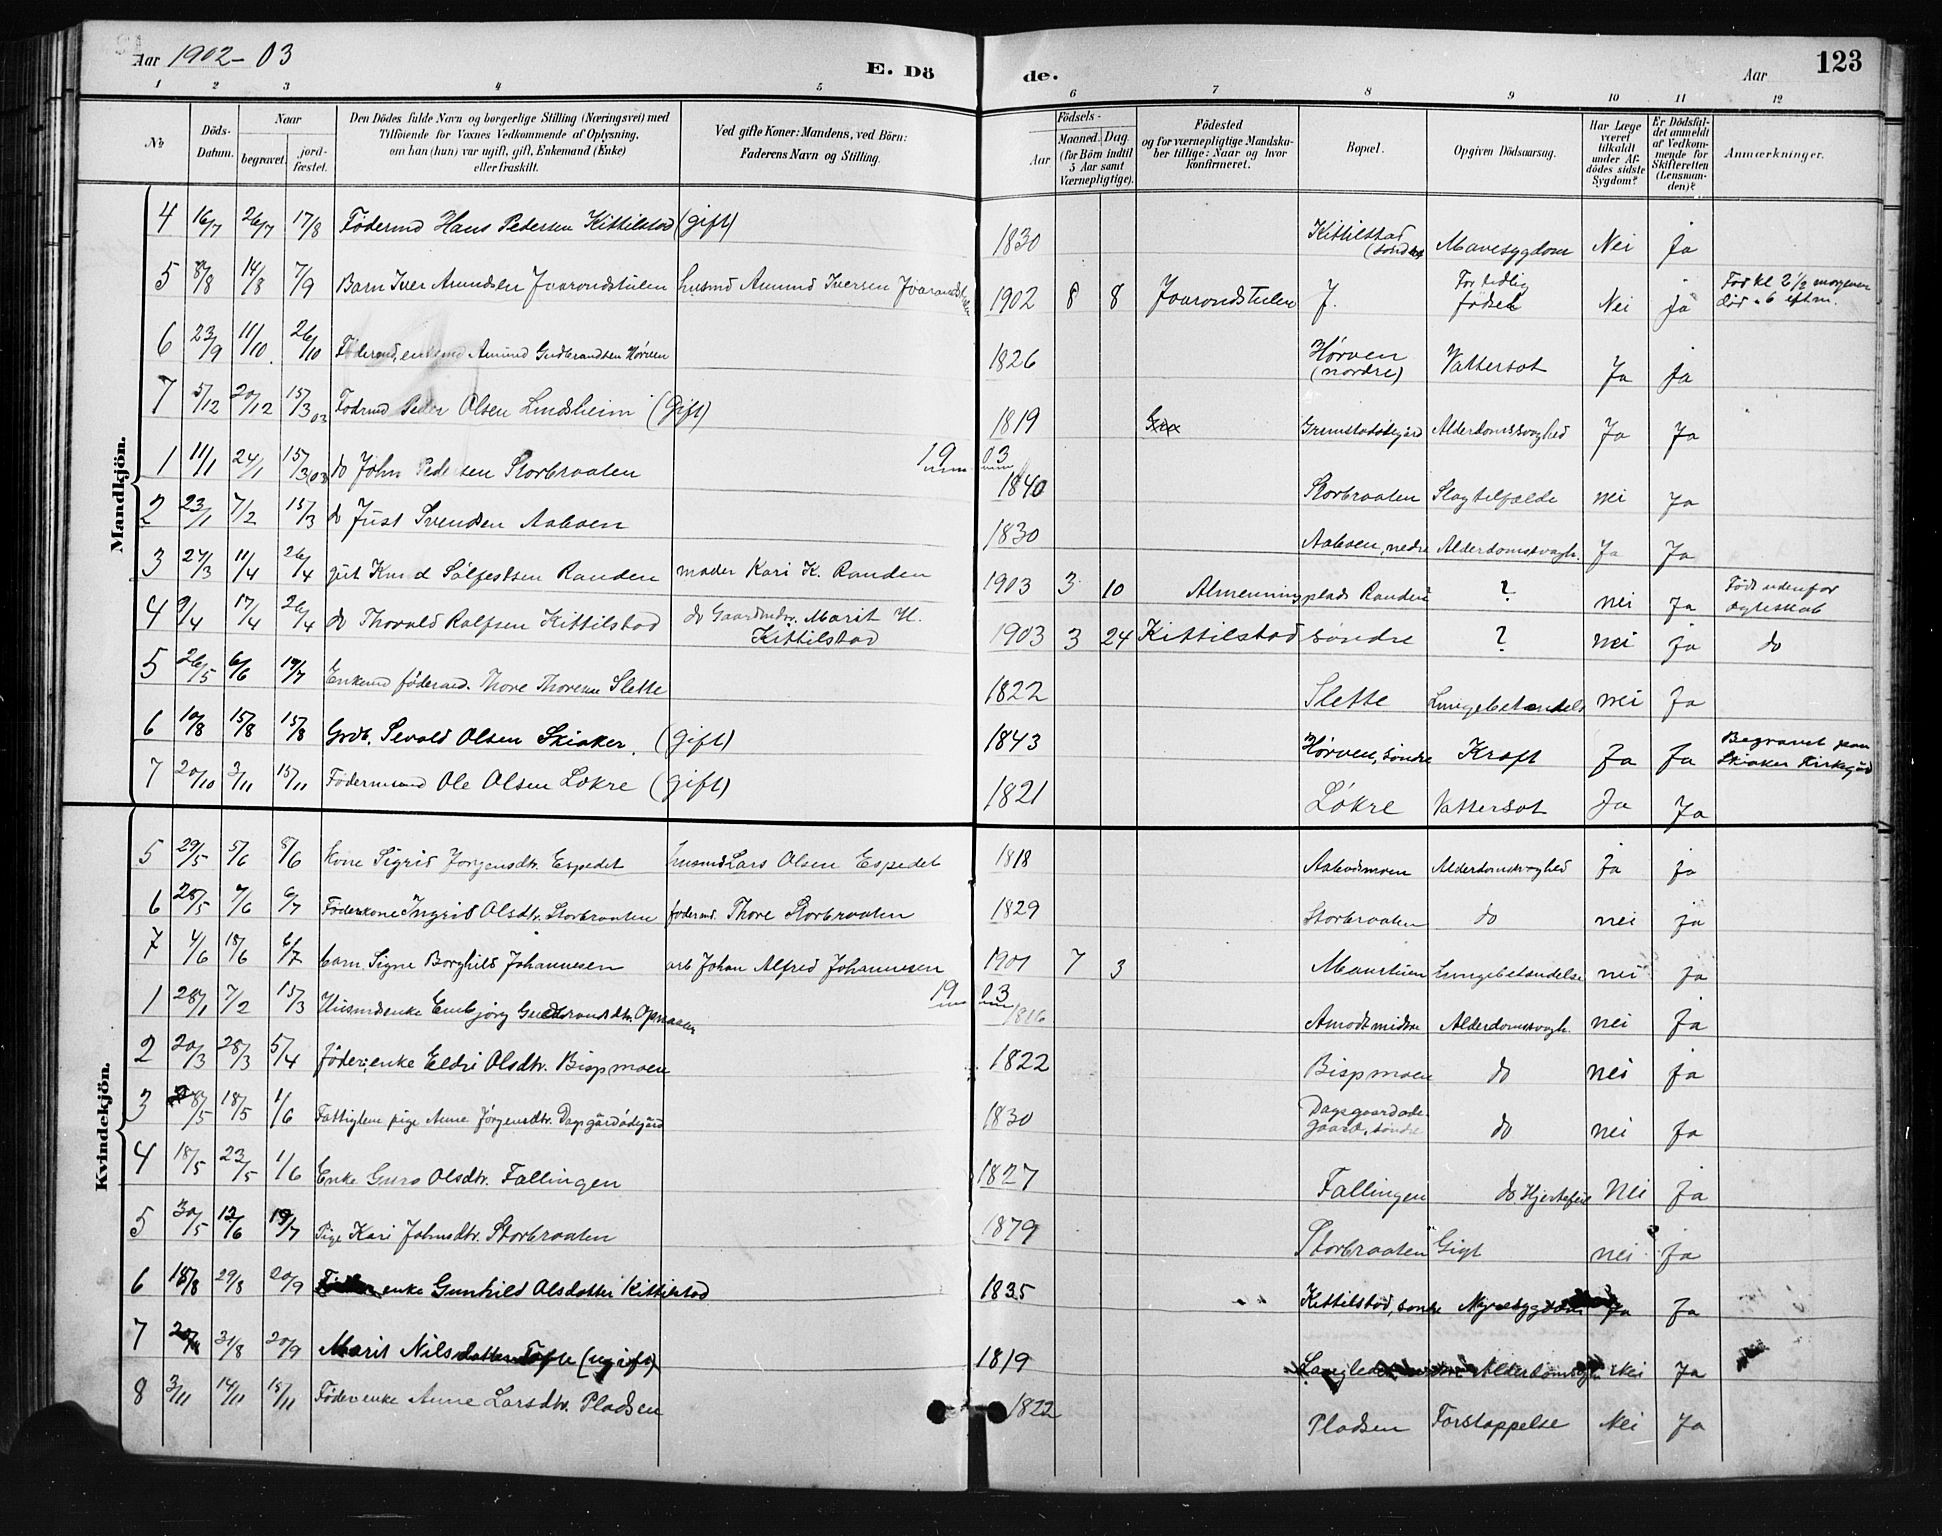 Aar 1902-03
E. Dö de.
Aar
123
1 2 3 4 5 6 7 8 9 10 11 12
No
Döds-Datum.
Naar
begravet.
jord-fæstet.
Den Dödes fulde Navn og borgerlige Stilling (Næringsvei) med Tilföiende for Voxnes Vedkommende af Oplysning, om han (hun) var ugift, gift, Enkemand (Enke) eller fraskilt.
Ved gifte Koner: Mandens, ved Börn: Faderens Navn og Stilling.
Födsels-
Aar
Maaned. Dag.
(for Börn indtil 5 Aar samt Værnepligtige).
Födested og for værnepligtige Mandskaber tillige: Naar og hvor konfirmeret.
Bopæl.
Opgiven Dödsaarsag.
Har Læge været tilkaldt under Afdödes sidste Sygdom?
Er Dödsfaldet anmeldt af Vedkommende for Skifteretten (Lensmanden)?
Anmærkninger.
Mandkjön.
4 16/7 26/7 17/8 Födermd Hans Pedersen Kittilstad (gift) 1830 Kittilstad (søndre) Mavesygdom Nei Ja
5 8/8 14/8 7/9 Barn Iver Amundsen Jvarondstulen husmd Amund Iversen 1902 8 8 Jvarondstulen J. For tidlig födsel Nei Ja Föd kl 2 1/2 morgenen död " 6 eftm.
6 23/9 11/10 26/10 Föderaad, enkemd Amund Gudbrandsen Hørven 1826 Hørven (nordre) Vattersot Ja Ja
7 5/12 20/12 15/3 03 Födrmd Peder Olsen Lindsheim (gift) 1819 Alderdomssvaghed Ja Ja
19 03
1 11/1 24/1 15/3 03 do John Pedersen Storbraaten 1840 Storbraaten Slagtilfælde nei Ja
2 23/1 7/2 15/3 do Just Svendsen Aaboen 1830 Aaboen, nedre Alderdomssvagh. Ja Ja
3 27/3 11/4 26/4 gut Knud Sølfestsen Randen moder Kari K. Randen 1903 3 10 Almenningplads Randen ? nei Ja Födt udenfor ægteskab
4 9/4 17/4 26/4 do Thorvald Rolfsen Kittilstad do Gaardmdtr. Marit H. Kittilstad 1903 3 24 Kittilstad søndre ? nei ja do
5 26/5 6/6 19/7 Enkemd föderaad. Thore Thoresen Slette 1822 Slette Lungebetændelse nei Ja
6 10/8 15/8 15/8 Grdb. Sevald Olsen Skiaker. (gift) 1843 Hørven, søndre Kræft Ja Ja Begravet paa Skiaker Kirkegård
7 20/10 3/11 15/11 Födermand Ole Olsen Løkre (gift) 1821 Løkre Vattersot Ja Ja
Kvindekjön.
5 29/5 5/6 8/6 Kone Sigrid Jørgensdtr. Espedet husmd Lars Olsen Espedet 1818 Aabodsmoen Alderdomssvaghed ja ja
6 28/5 7/6 6/7 Föderkone Ingrid Olsdtr. Storbraaten föderaad. Thore Storbraaten 1829 Storbraaten do nei ja
7 4/6 18/6 6/7 barn Signe Borghild Johannesen arb Johan Alfred Johannesen 1901 7 3 Lungebetændelse nei Ja
19 03
1 28/1 7/2 15/3 Husmdsenke Embjørg Gudbrandsdtr. 1816 Aamodt midtre Alderdomssvagh. nei Ja
2 20/3 28/3 5/4 föder, enke Eldri Olsdtr. Bispmoen 1822 Bispmoen do nei ja
3 8/5 18/5 1/6 Fattiglem pige Anne Jørgensdtr. Dagsgårdødegård 1830 Dagsgaardødegaard, søndre do nei Ja
4 18/5 23/5 1/6 Enke Guro Olsdtr. Fallingen 1827 Fallingen do. Hjertefeil Nei Ja
5 30/5 12/6 19/7 Pige Kari Johnsdtr. Storbraaten 1879 Storbraaten Gigt nei Ja
6 18/8 29/8 20/9 enke Gunhild Olsdatter Kittilstad 1835 Kittilstad, søndre Nyresygdom Ja Ja
7 31/8 20/9 Marit Nilsdatter Tofte (ugift) 1819 Alderdomssvagh. Nei Ja
8 3/11 14/11 15/11 Föder enke Anne Larsdtr. Pladsen 1822 Pladsen Forstoppelse Nei Ja